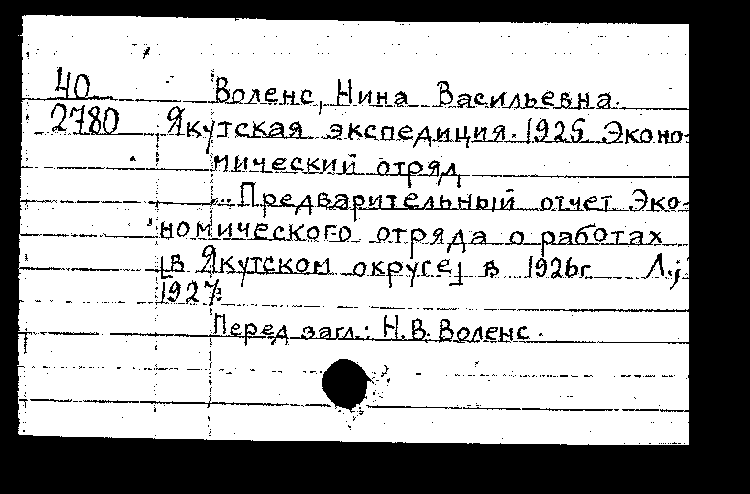 40 Воленс, Нина Васильевна.
2780 Якутская экспедиция. 1925 Эконо-
мический отряд
...Предварительный отчет Эко-
номического отряда о работах
[в Якутском округе] в 1926г. Л.,
1927.
Перед загл.: Н.В. Воленс.